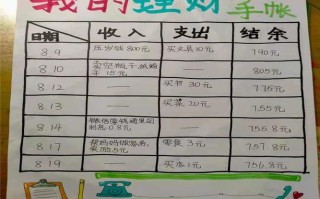 我的理财
手帐
日期 收入 支出 结余
8.9 压岁钱800元 买文具10元 790元
8.10 卖空瓶子、纸箱子15元 805元
8.12 买书30元 775元
8.13 买菜20元 755元
8.14 0.8元 755.8元
8.17 零食3元 757.8元
8.19 买冰1元 756.8元